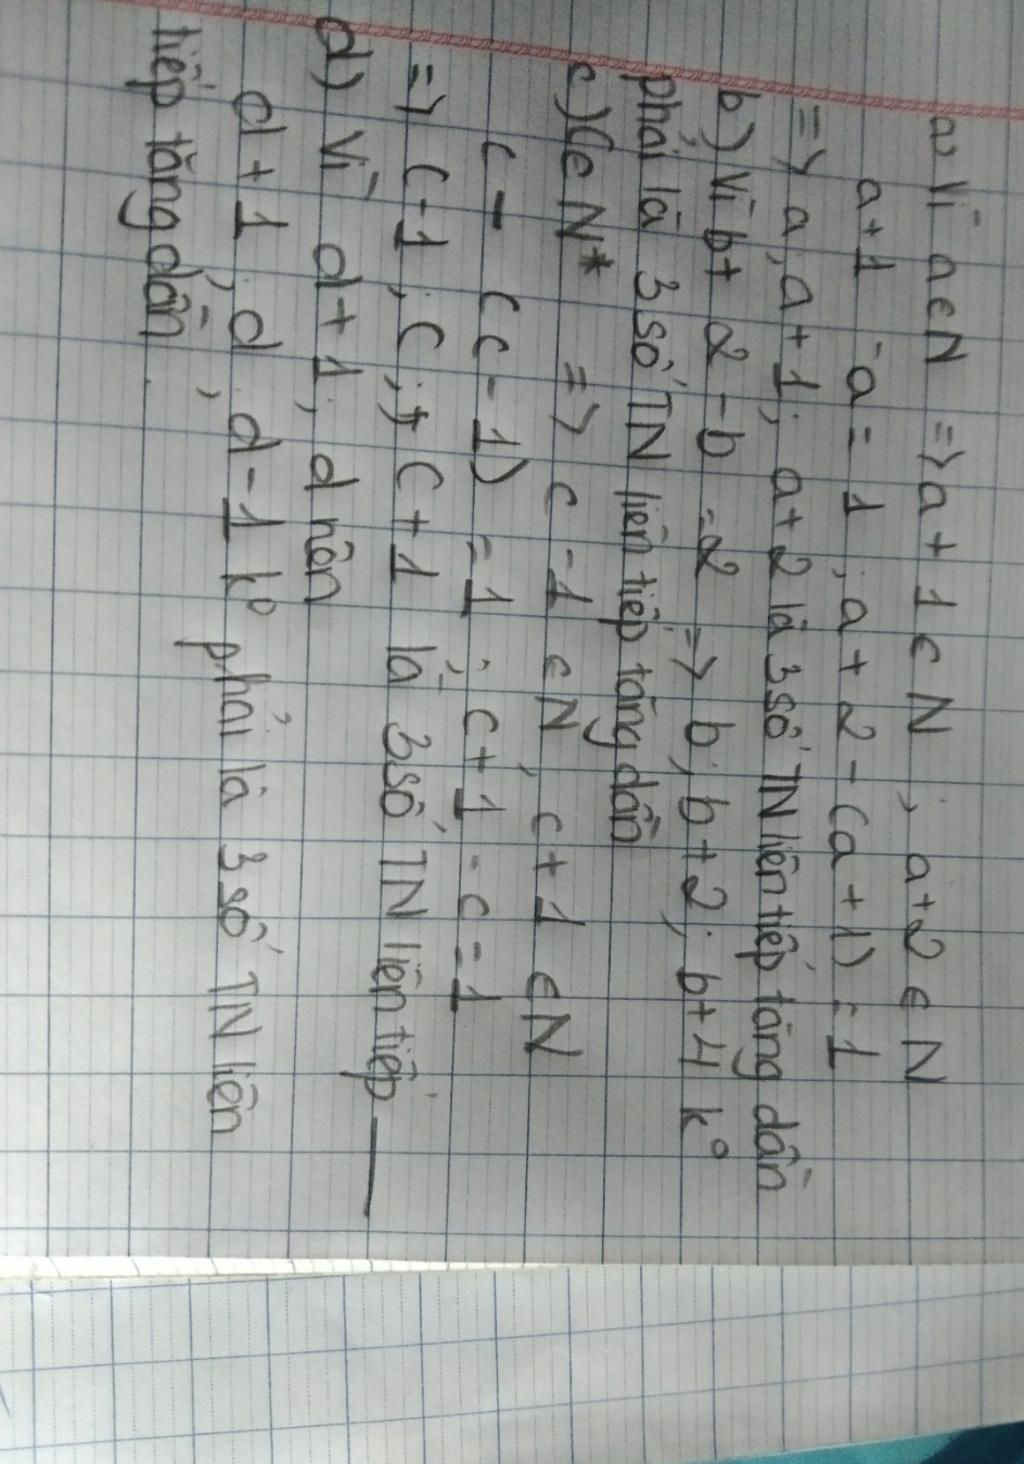 a) Vì a ∈ N => a + 1 ∈ N ; a+2 ∈ N
a+1 - a = 1 ; a + 2 - (a + 1) = 1
=> a ; a + 1 ; a + 2 là 3 số TN liên tiếp tăng dần
b) Vì b + 2 - b = 2 => b ; b + 2 ; b + 4 k°
phải là 3 số TN liên tiếp tăng dần
c) C ∈ N* => c - 1 ∈ N , c + 1 ∈ N
c - (c - 1) = 1 ; c + 1 - c = 1
=> c - 1 , c ; c + 1 là 3 số TN liên tiếp __
d) Vì d + 1 ; d nên
d + 1 ; d , d - 1 k° phải là 3 số TN liên
tiếp tăng dần .